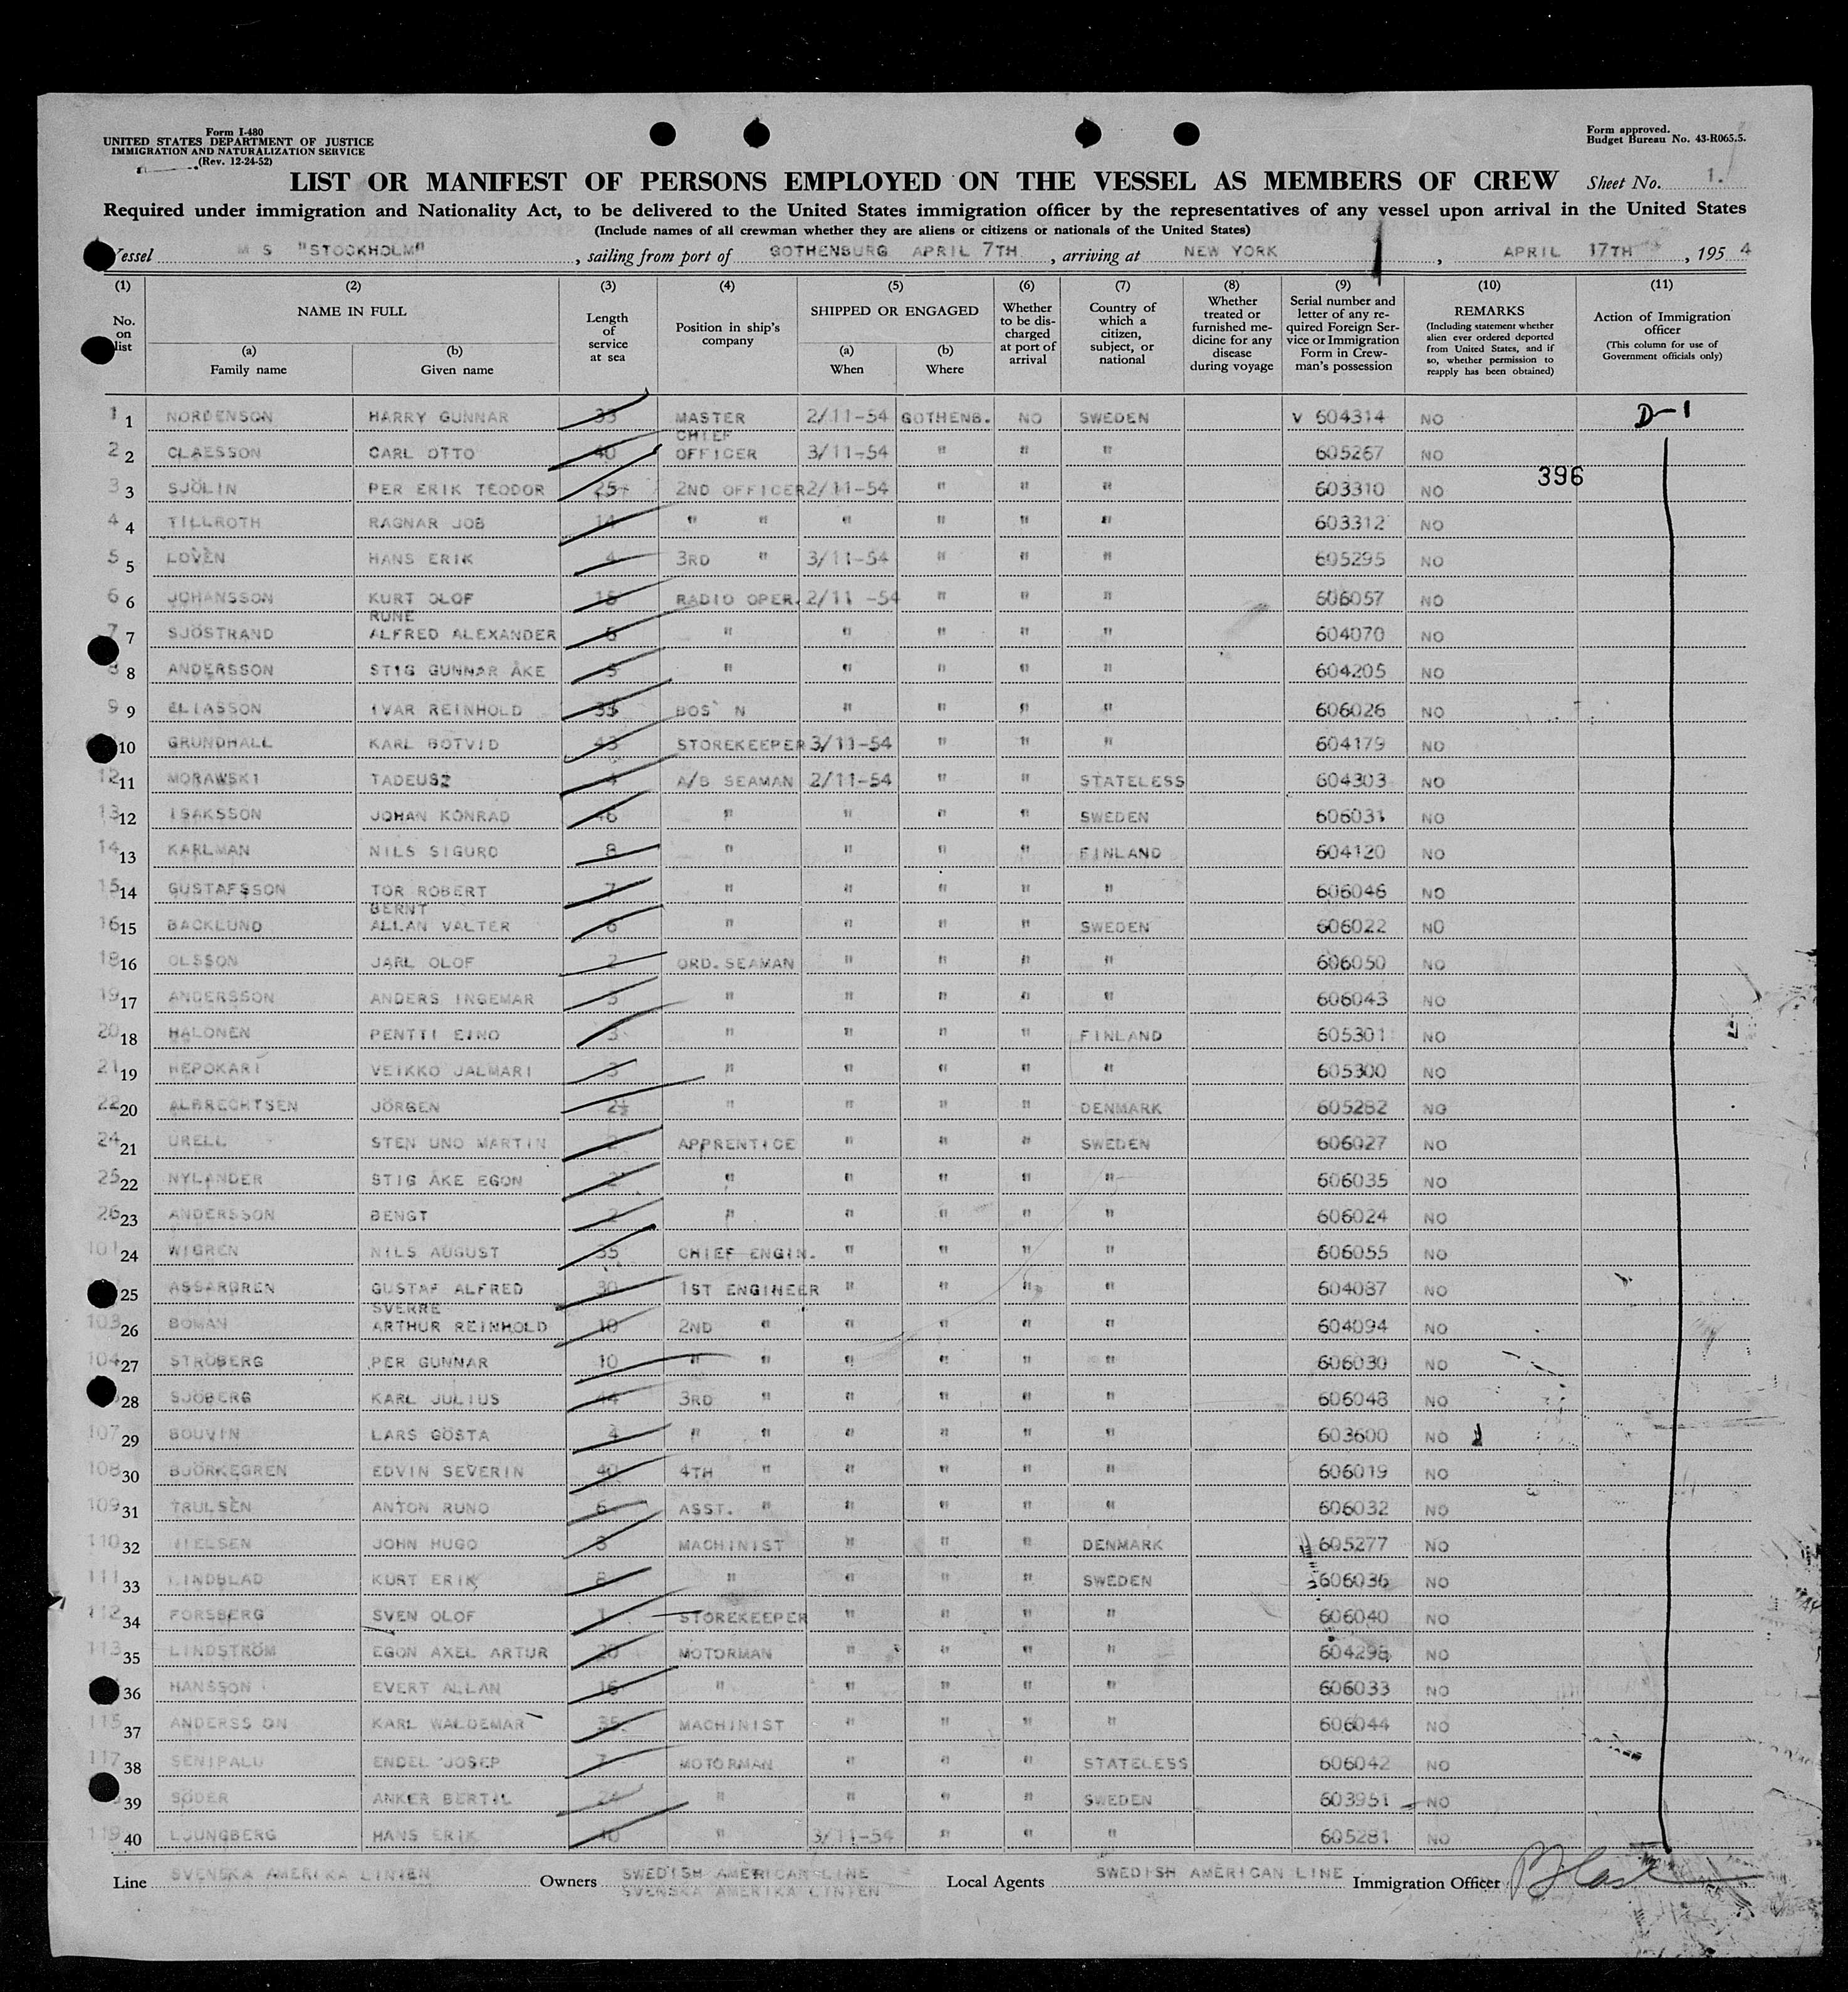 Form I-480
UNITED STATES DEPARTMENT OF JUSTICE
IMMIGRATION AND NATURALIZATION SERVICE
(Rev. 12-24-52)
Form approved.
Budget Bureau No. 43-R065.5.
LIST OR MANIFEST OF PERSONS EMPLOYED ON THE VESSEL AS MEMBERS OF CREW Sheet No. 1.
Required under immigration and Nationality Act, to be delivered to the United States immigration officer by the representatives of any vessel upon arrival in the United States
(Include names of all crewman whether they are aliens or citizens or nationals of the United States)
Vessel M S "STOCKHOLM", sailing from port of GOTHENBURG APRIL 7TH, arriving at NEW YORK, APRIL 17TH, 1954
(1) No. on list
(2) NAME IN FULL (a) Family name (b) Given name
(3) Length of service at sea
(4) Position in ship's company
(5) SHIPPED OR ENGAGED (a) When (b) Where
(6) Whether to be discharged at port of arrival
(7) Country of which a citizen, subject, or national
(8) Whether treated or furnished medicine for any disease during voyage
(9) Serial number and letter of any required Foreign Service or Immigration Form in Crewman's possession
(10) REMARKS (Including statement whether alien ever ordered deported from United States, and if so, whether permission to reapply has been obtained)
(11) Action of Immigration officer (This column for use of Government officials only)
1 1 NORDENSON HARRY GUNNAR 33 MASTER 2/11-54 GOTHENB. NO SWEDEN V 604314 NO D-1
2 2 CLAESSON CARL OTTO 40 CHIEF OFFICER 3/11-54 " " " 605267 NO
396
3 3 SJÖLIN PER ERIK TEODOR 25 2ND OFFICER 2/11-54 " " " 603310 NO
4 4 TILLROTH RAGNAR JOB 14 " " " " " " 603312 NO
5 5 LOVÈN HANS ERIK 4 3RD " 3/11-54 " " " 605295 NO
6 6 JOHANSSON KURT OLOF 15 RADIO OPER. 2/11 -54 " " " 606057 NO
7 7 SJÖSTRAND RUNE ALFRED ALEXANDER 6 " " " " " 604070 NO
8 8 ANDERSSON STIG GUNNAR ÅKE 5 " " " " " 604205 NO
9 9 ELIASSON IVAR REINHOLD 35 BOS'N " " " " 606026 NO
10 GRUNDHALL KARL BOTVID 43 STOREKEEPER 3/11-54 " " " 604179 NO
12 11 MORAWSKI TADEUSZ 4 A/B SEAMAN 2/11-54 " " STATELESS 604303 NO
13 12 ISAKSSON JOHAN KONRAD 46 " " " " SWEDEN 606031 NO
14 13 KARLMAN NILS SIGURD 8 " " " " FINLAND 604120 NO
15 14 GUSTAFSSON TOR ROBERT 7 " " " " " 606046 NO
16 15 BACKLUND BERNT ALLAN VALTER 6 " " " " SWEDEN 606022 NO
18 16 OLSSON JARL OLOF 2 ORD. SEAMAN " " " " 606050 NO
19 17 ANDERSSON ANDERS INGEMAR 3 " " " " " 606043 NO
20 18 HALONEN PENTTI EINO 3 " " " " FINLAND 605301 NO
21 19 HEPOKARI VEIKKO JALMARI 3 " " " " " 605300 NO
22 20 ALBRECHTSEN JÖRGEN 2½ " " " " DENMARK 605282 NO
24 21 URELL STEN UNO MARTIN 2 APPRENTICE " " " SWEDEN 606027 NO
25 22 NYLANDER STIG ÅKE EGON 2 " " " " " 606035 NO
26 23 ANDERSSON BENGT 2 " " " " " 606024 NO
101 24 WIGREN NILS AUGUST 35 CHIEF ENGIN. " " " " 606055 NO
25 ASSARGREN GUSTAF ALFRED 30 1ST ENGINEER " " " " 604087 NO
103 26 BOMAN SVERRE ARTHUR REINHOLD 10 2ND " " " " " 604094 NO
104 27 STRÖBERG PER GUNNAR 10 " " " " " " 606030 NO
28 SJÖBERG KARL JULIUS 44 3RD " " " " " 606048 NO
107 29 BOUVIN LARS GÖSTA 4 " " " " " " 603600 NO
108 30 BJÖRKEGREN EDVIN SEVERIN 40 4TH " " " " " 606019 NO
109 31 TRULSÈN ANTON RUNO 6 ASST. " " " " " 606032 NO
110 32 NIELSEN JOHN HUGO 8 MACHINIST " " " DENMARK 605277 NO
111 33 LINDBLAD KURT ERIK 8 " " " " SWEDEN 606036 NO
112 34 FORSBERG SVEN OLOF 1 STOREKEEPER " " " " 606040 NO
113 35 LINDSTRÖM EGON AXEL ARTUR 20 MOTORMAN " " " " 604298 NO
36 HANSSON EVERT ALLAN 16 " " " " " 606033 NO
115 37 ANDERSSON KARL WALDEMAR 35 MACHINIST " " " " 606044 NO
117 38 SENIPALU ENDEL JOSEP 7 MOTORMAN " " " STATELESS 606042 NO
39 SÖDER ANKER BERTIL 24 " " " " SWEDEN 603951 NO
119 40 LJUNGBERG HANS ERIK 10 " 3/11-54 " " " 605281 NO
Line SVENSKA AMERIKA LINIEN Owners SWEDISH AMERICAN LINE SVENSKA AMERIKA LINIEN Local Agents SWEDISH AMERICAN LINE Immigration Officer